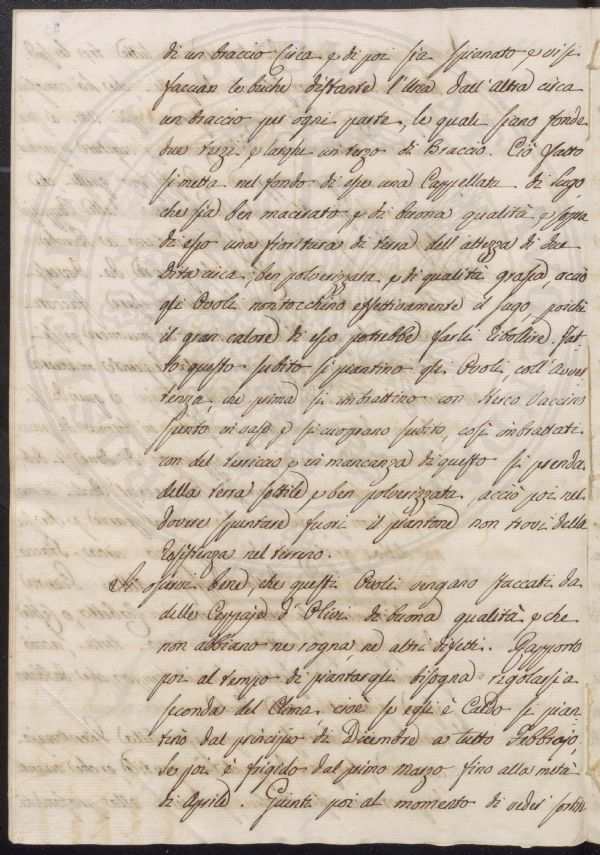 di un braccio circa, e di poi sia spianato, e visi
faccian le buche distante l'una dall'altra circa
un braccio per ogni parte, le quali siano fonde
due terzi, e larghe un terzo di Braccio. Ciò fatto
si metta nel fondo di esse una Cappellata di sugo,
che sia ben macerato, e di buona qualità, e sopra
di esso una fioritura di terra dell'altezza di due
dita circa, ben polverizzata, e di qualità grassa, acciò
gli Ovoli non tocchino effettivamente il sugo, poichè
il gran calore di esso potrebbe farli ribollire. Fat-
to questo subito si piantino gli Ovoli, coll'avver
tenza, che prima si imbrattino con sterco vaccino
in vaso, e si cuoprano subito, così imbrattati
con del terriccio, e in mancanza di questo si prenda
della terra sottile, e ben polverizzata, acciò poi nel
dovere spuntare fuori il piantone non trovi della
resistenza nel terreno.
Si osservi bene, che questi Ovoli vengano staccati da
delle Ceppaje d'Olivi di buona qualità, e che
non abbiano ne rogna, ne altri difetti. Rapporto
poi al tempo di piantargli bisogna regolarsi a
seconda del Clima, cioè se egli è Caldo si pian
terà dal principio di Dicembre a tutto Febbrajo,
se poi è frigido dal primo marzo fino alla metà
di Aprile. Giunti poi al momento di veder sortire